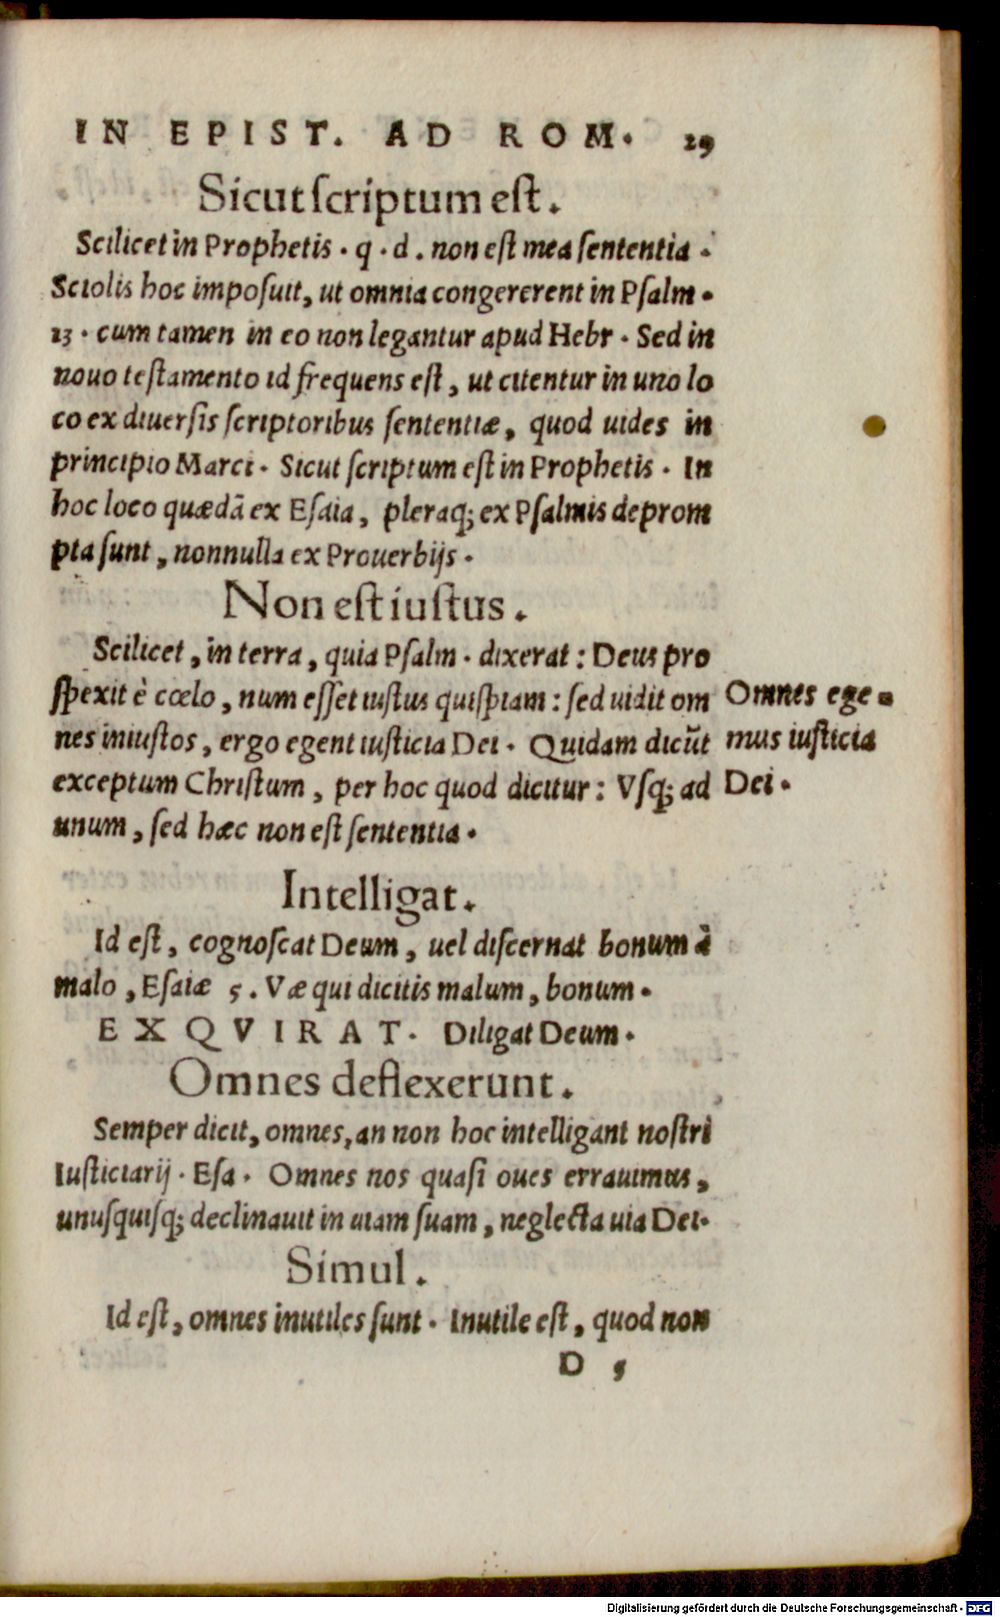 IN EPIST. AD ROM. 29
Sicut ſcriptum eſt.
Scilicet in Prophetis. q. d. non eſt mea ſententia.
Sciolis hoc impoſuit, ut omnia congererent in Pſalm.
13. cum tamen in eo non legantur apud Hebr. Sed in
nouo teſtamento id frequens eſt, ut citentur in uno lo
co ex diuerſis ſcriptoribus ſententiæ, quod uides in
principio Marci. Sicut ſcriptum eſt in Prophetis. In
hoc loco quædā ex Eſaia, pleraq; ex Pſalmis deprom
pta ſunt, nonnulla ex Prouerbijs.
Non eſt iuſtus.
Scilicet, in terra, quia Pſalm. dixerat: Deus pro
ſpexit è cœlo, num eſſet iuſtus quiſpiam: ſed uidit om
nes iniuſtos, ergo egent iuſticia Dei. Quidam dicūt
exceptum Chriſtum, per hoc quod dicitur: Vſq; ad
unum, ſed hæc non eſt ſententia.
Omnes ege-
mus iuſticia
Dei.
Intelligat.
Id eſt, cognoſcat Deum, uel diſcernat bonum à
malo, Eſaiæ 5. Væ qui dicitis malum, bonum.
EXQVIRAT. Diligat Deum.
Omnes deflexerunt.
Semper dicit, omnes, an non hoc intelligant noſtri
Iuſticiarij. Eſa. Omnes nos quaſi oues errauimus,
unuſquiſq; declinauit in uiam ſuam, neglecta uia Dei.
Simul.
Id eſt, omnes inutiles ſunt. Inutile eſt, quod non
D 5
Digitalisierung gefördert durch die Deutsche Forschungsgemeinschaft - DFG